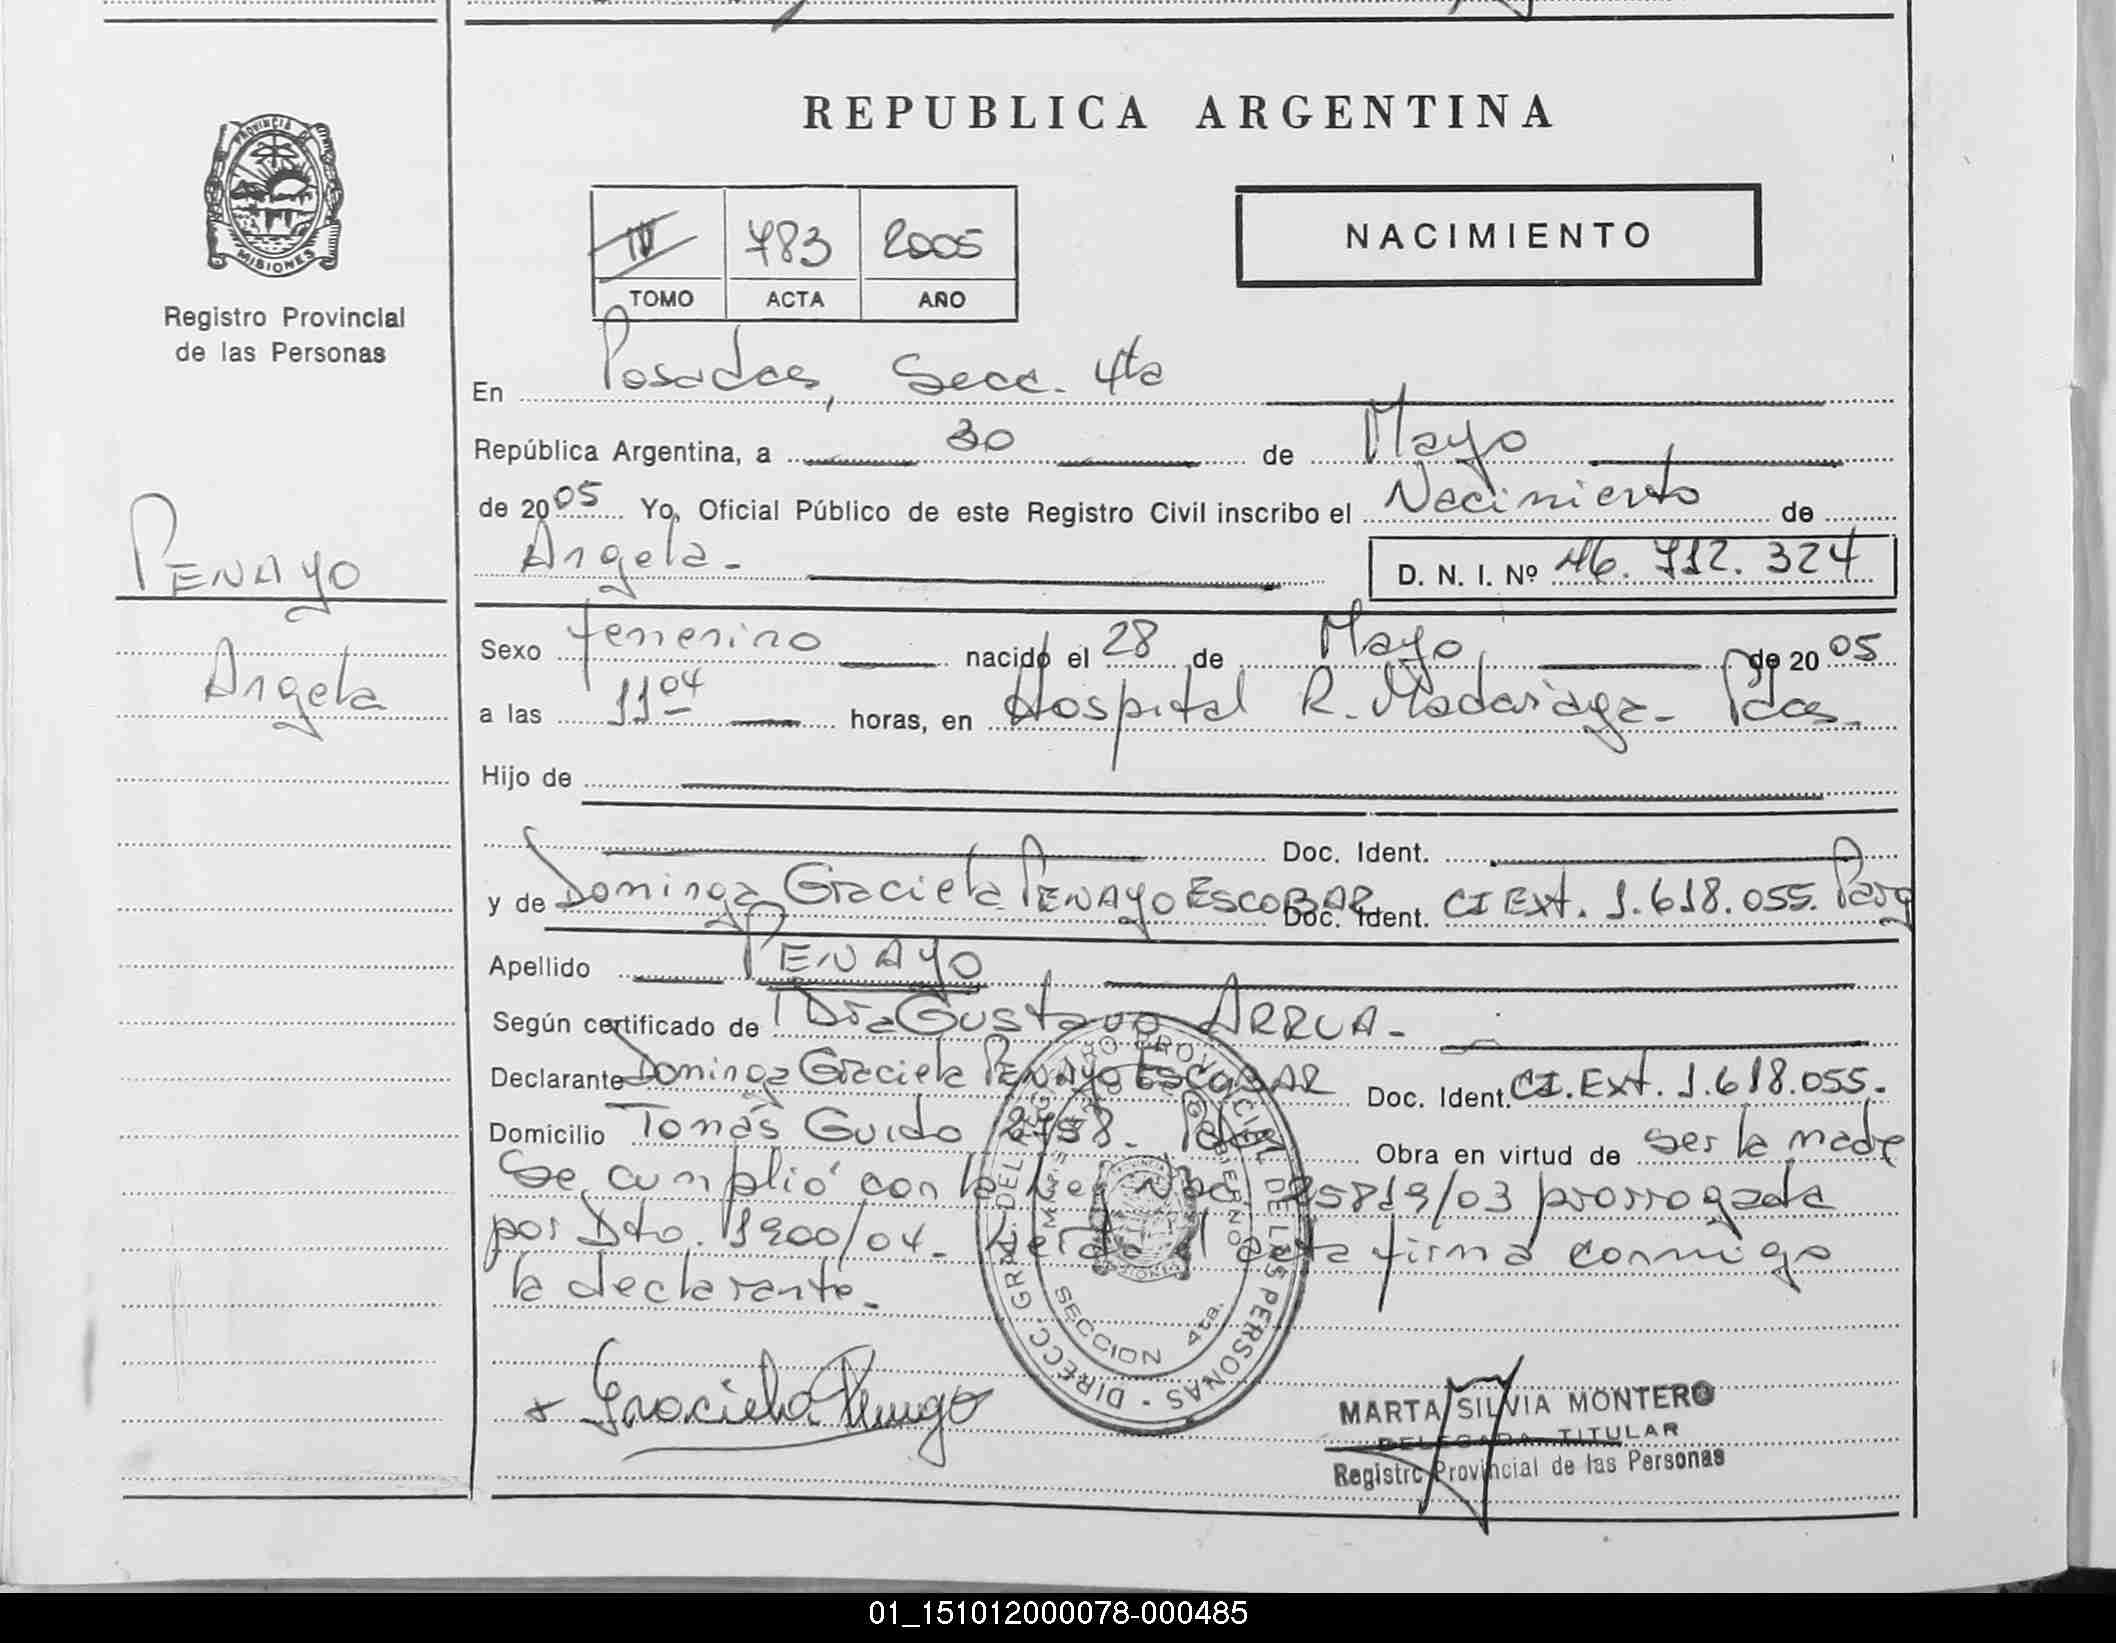 REPUBLICA ARGENTINA
PROVINCIA DE MISIONES
Registro Provincial
de las Personas
IV 783 2005
TOMO ACTA AÑO
NACIMIENTO
En Posadas, Secc. 4ta
República Argentina, a 30 de Mayo
de 2005 Yo, Oficial Público de este Registro Civil inscribo el Nacimiento de
Angela.-
D. N. I. Nº 46.712.324
PENAYO
Angela
Sexo femenino nacido el 28 de Mayo de 2005
a las 11 04 horas, en Hospital R. Madariaga- Pdas.
Hijo de
Doc. Ident.
y de Dominga Graciela PENAYO ESCOBAR Doc. Ident. CI Ext. 1.618.055. Parg
Apellido PENAYO
Según certificado de Gustavo ARRUA-
Declarante Dominga Graciela PENAYO ESCOBAR Doc. Ident. CI.Ext. 1.618.055.
Domicilio Tomás Guido Pdas Obra en virtud de ser la madre
Se cumplió con la Ley Nro. 25819/03 prorrogada
por Dto. 1900/04- Leída el acta firma conmigo
la declarante.-
DIRECC. GRAL. DEL REGISTRO PROVINCIAL DE LAS PERSONAS
SECCION 4ta.
Graciela Penayo
MARTA SILVIA MONTERO
DELEGADA TITULAR
Registro Provincial de las Personas
01_151012000078-000485